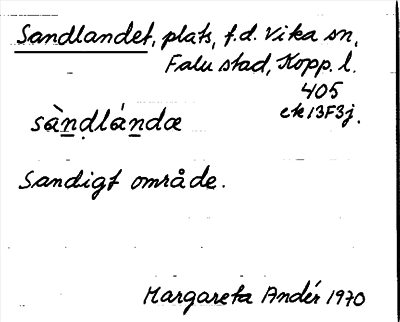 Sandlandet, plats, f.d. Vika sn,
Falu stad, Kopp. l.
405
ek 13F3j.
sàndlándæ
Sandigt område.
Margareta Andér 1970